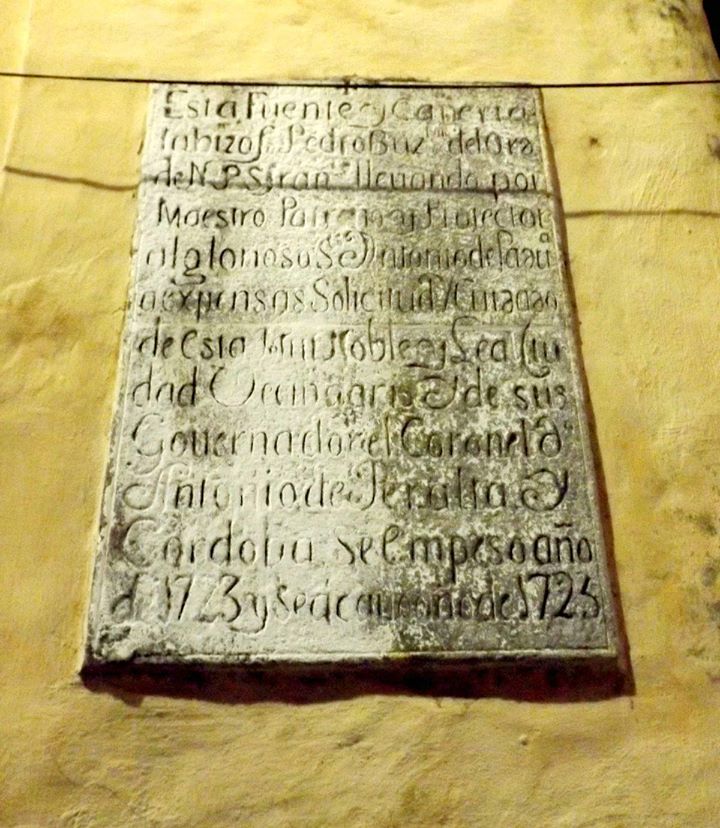 Esta Fuente y Cañeria
la hizo f. Pedro Buz.ta del Ora
de N. P. S. fran.co lleuando por
Maestro Patrono y Protector
al glorioso S. Antonio de Padua
a expensas Solicitud y Cuidado
de esta Mui Noble y Lea Ciu
dad de sus
Gouernador el Coronel D.
Antonio de Peralta y
Cordoba. se empeso año
d 1723 y se acauo año de 1725